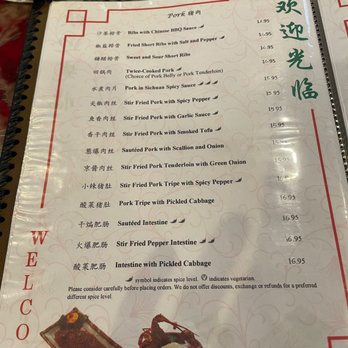 Pork 猪肉
沙茶排骨 Ribs with Chinese BBQ Sauce 14.95
椒盐排骨 Fried Short Ribs with Salt and Pepper 14.95
糖醋排骨 Sweet and Sour Short Ribs 14.95
回锅肉 Twice-Cooked Pork 16.95
(Choice of Pork Belly or Pork Tenderloin)
水煮肉片 Pork in Sichuan Spicy Sauce 16.95
尖椒肉丝 Stir Fried Pork with Spicy Pepper 15.95
鱼香肉丝 Stir Fried Pork with Garlic Sauce 15.95
香干肉丝 Stir Fried Pork with Smoked Tofu 15.95
葱爆肉丝 Sautéed Pork with Scallion and Onion 15.95
京酱肉丝 Stir Fried Pork Tenderloin with Green Onion 15.95
小辣猪肚 Stir Fried Pork Tripe with Spicy Pepper 16.95
酸菜猪肚 Pork Tripe with Pickled Cabbage 16.95
干煸肥肠 Sautéed Intestine 16.95
火爆肥肠 Stir Fried Pepper Intestine 16.95
酸菜肥肠 Intestine with Pickled Cabbage 16.95
symbol indicates spice level. indicates vegetarian.
Please consider carefully before placing orders. We do not offer discounts, exchange or refunds for a preferred
different spice level
欢迎光临
WELCO